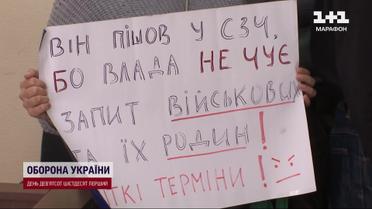 1+1
МАРАФОН
ВІН ПІШОВ У СЗЧ,
БО ВЛАДА НЕ ЧУЄ
ЗАПИТ ВІЙСЬКОВИХ
ТА ЇХ РОДИН!
ТКІ ТЕРМІНИ!
ОБОРОНА УКРАЇНИ
ДЕНЬ ДЕВ'ЯТСОТ ШІСТДЕСЯТ ПЕРШИЙ